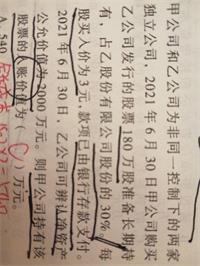 甲公司和乙公司为非同一控制下的两家
独立公司，2021 年 6 月 30 日甲公司购买
乙公司发行的股票 180 万股准备长期持
有，占乙股份有限公司股份的 30%。每
股买入价为 3 元，款项已由银行存款支付。
2021 年 6 月 30 日，乙公司可辨认净资产
公允价值为 2000 万元。则甲公司持有该
股票的入账价值为（C）万元。
A. 540